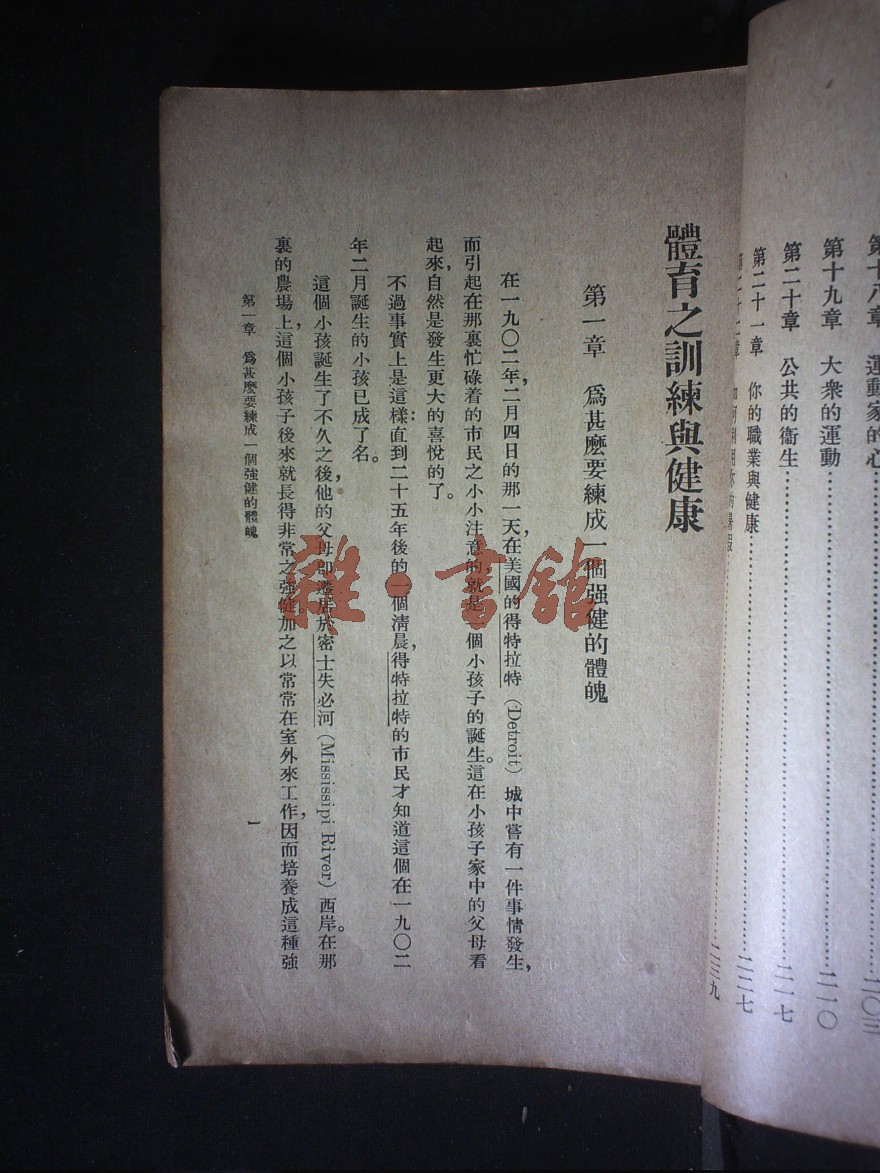 第十八章　運動家的心……二〇三
第十九章　大衆的運動……二一〇
第二十章　公共的衞生……二一七
第二十一章　你的職業與健康……二二七
第二十二章……二三九
體育之訓練與健康
第一章　爲甚麼要練成一個强健的體魄
在一九〇二年，二月四日的那一天，在美國的得特拉特（Detroit）城中嘗有一件事情發生，
而引起在那裏忙碌着的市民之小小注意的，就是一個小孩子的誕生。這在小孩子家中的父母看
起來，自然是發生更大的喜悅的了。
不過事實上是這樣：直到二十五年後的一個清晨，得特拉特的市民才知道這個在一九〇二
年二月誕生的小孩已成了名。
這個小孩誕生了不久之後，他的父母即遷居於密士失必河（Mississipi River）西岸。在那
裏的農場上，這個小孩子後來就長得非常之强健，加之以常常在室外來工作，因而培養成這種強
第一章　爲甚麼要練成一個強健的體魄
一
雜·書館